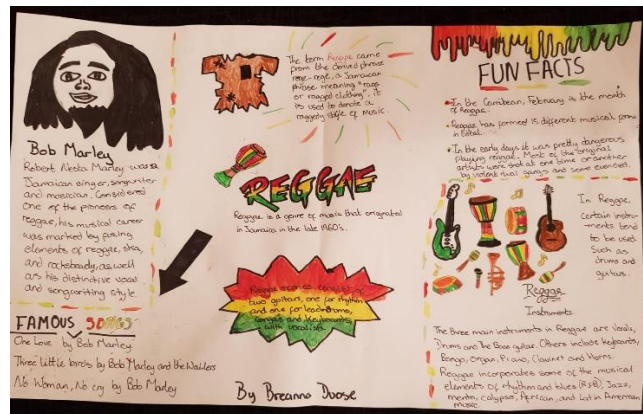 Bob Marley
Robert Nesta Marley was a
Jamaican singer, songwriter
and musician. Considered
one of the pioneers of
reggae, his musical career
was marked by fusing
elements of reggae, ska,
and rocksteady, as well
as his distinctive vocal
and songwriting style.
FAMOUS SONGS
One Love by Bob Marley
Three little birds by Bob Marley and the Wailers
No Woman, No cry by Bob Marley
The term Reggae came
from the derived phrase
rege-rege, a Jamaican
phrase meaning "rags
or ragged clothing", it
is used to denote a
raggedy style of music.
REGGAE
Reggae is a genre of music that originated
in Jamaica in the late 1960's.
Reggae
two guitars, one for rhythm
and one for lead
and keyboards,
with vocalists.
By Breanna
FUN FACTS
In the Caribbean, February is the month
of Reggae.
Reggae has formed 15 different musical forms
in total.
In the early days it was pretty dangerous
playing reggae. Most of the original
artists were shot at one time or another
by violent rival gangs and some
In Reggae,
certain instru-
ments tend
to be used
Such as
drums and
guitars.
Reggae
Instruments
The three main instruments in Reggae are Vocals,
Drums and The Bass guitar. Others include keyboards,
Bongo, Organ, Piano, Clavinet and Horns.
Reggae incorporates some of the musical
elements of rhythm and blues (R&B), Jazz,
mento, calypso, African, and Latin American
music.